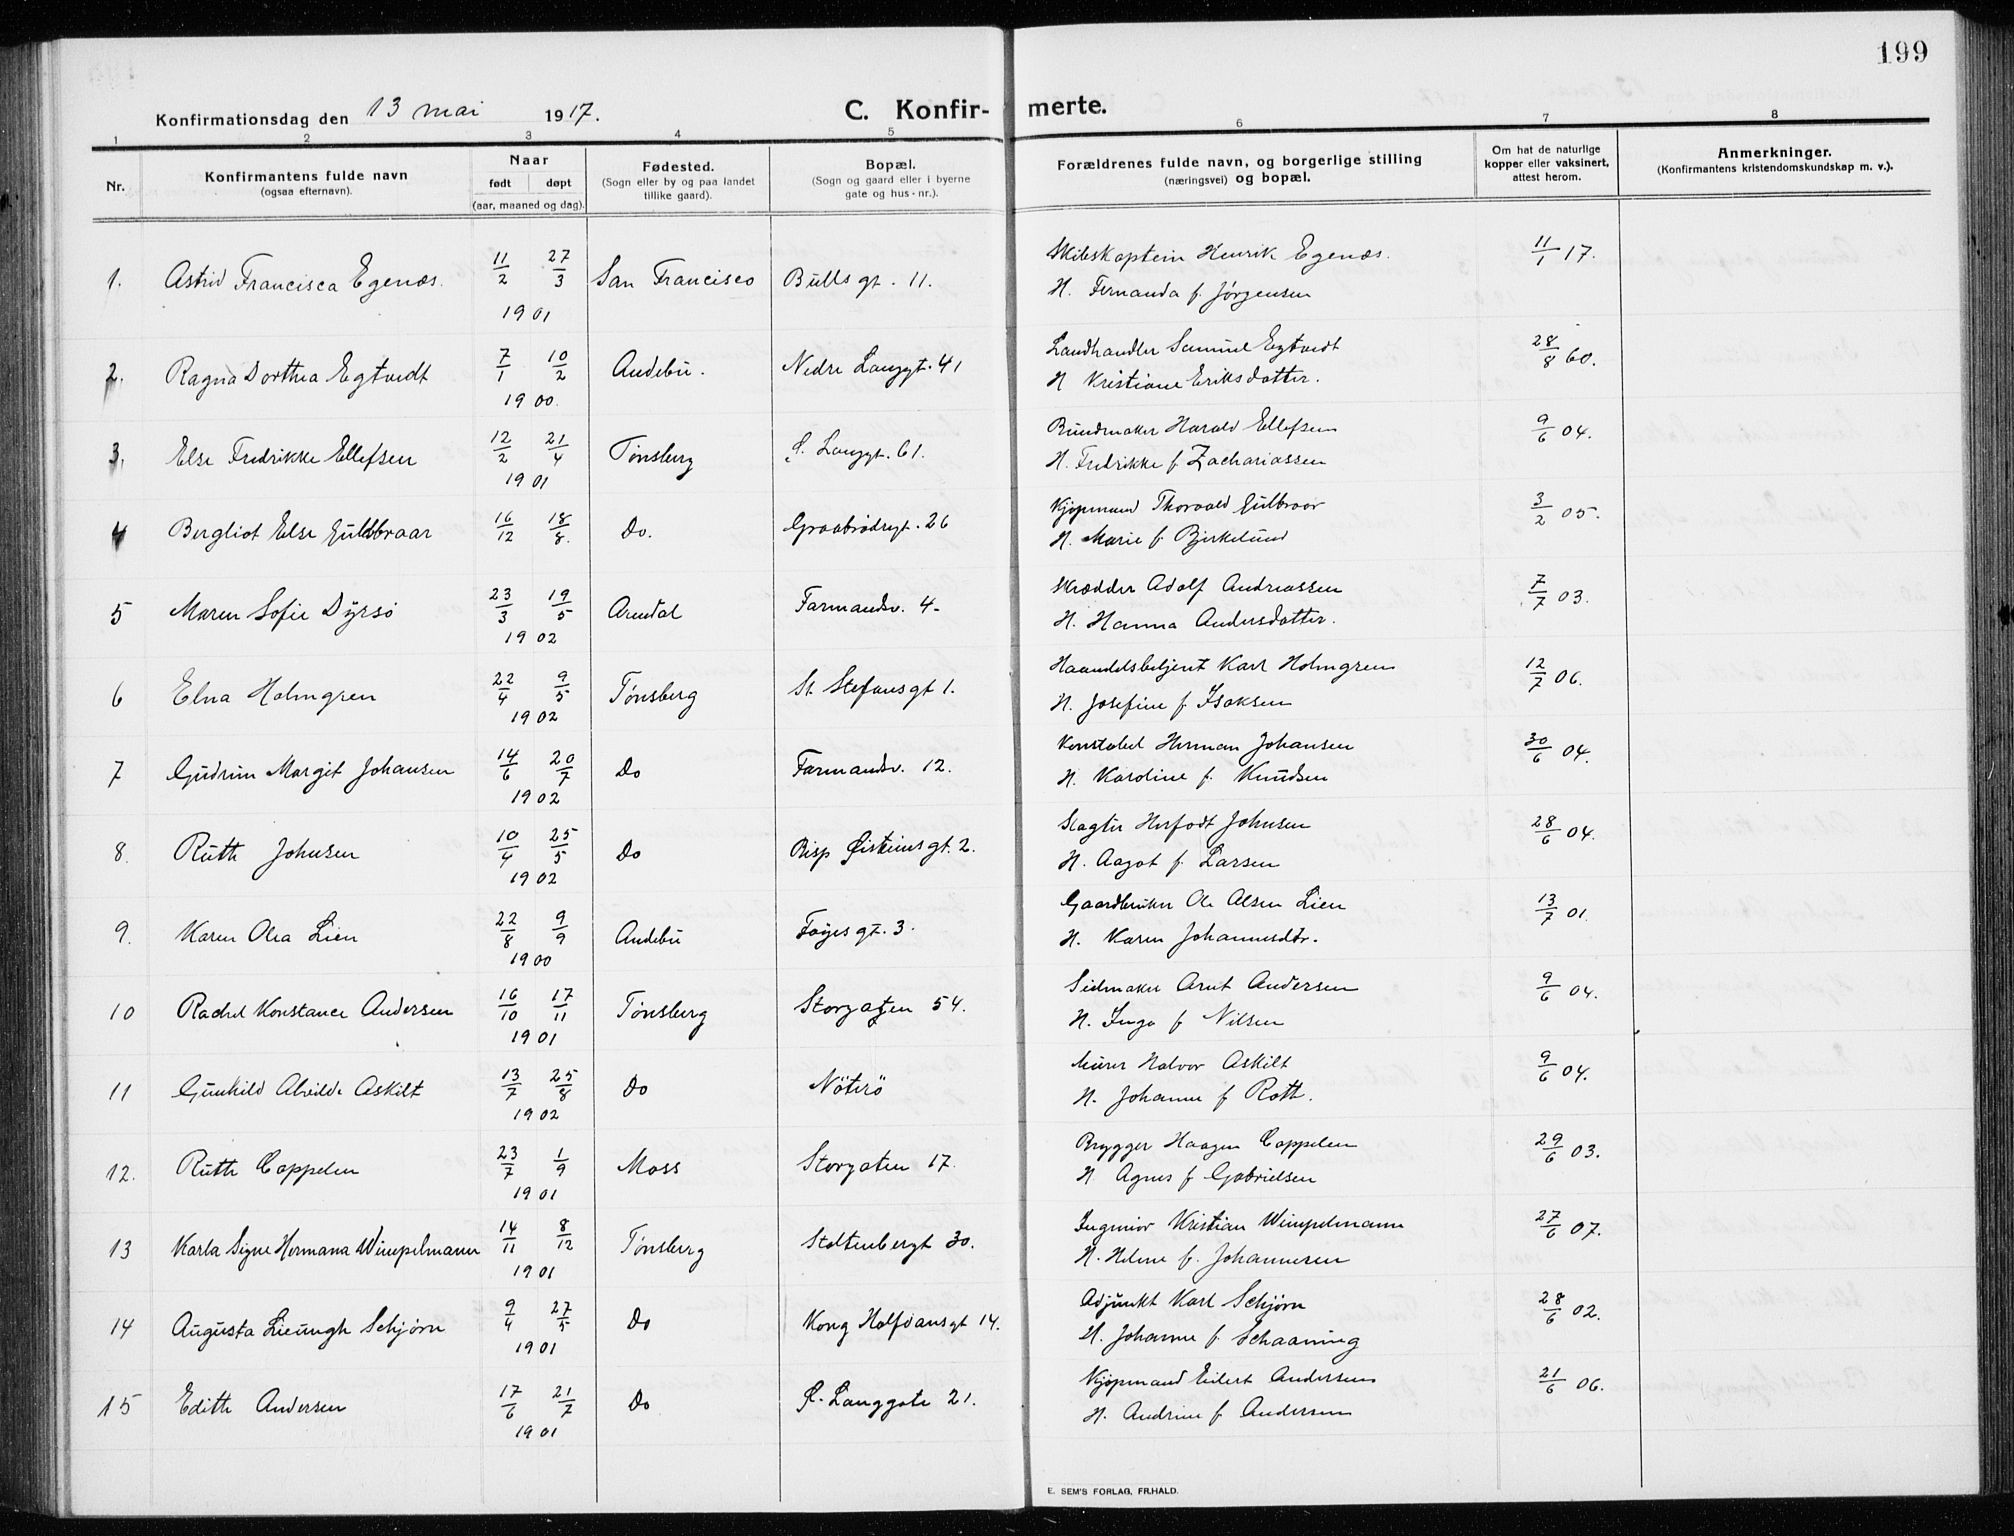 199
Konfirmationsdag den 13 mai 1917.
C. Konfir-merte.
1 2 3 4 5 6 7 8
Nr.
Konfirmantens fulde navn
(ogsaa efternavn).
Naar
født døpt
(aar, maaned og dag).
Fødested.
(Sogn eller by og paa landet
tillike gaard).
Bopæl.
(Sogn og gaard eller i byerne
gate og hus-nr.).
Forældrenes fulde navn, og borgerlige stilling
(næringsvei) og bopæl.
Om hat de naturlige
kopper eller vaksinert,
attest herom.
Anmerkninger.
(Konfirmantens kristendomskundskap m. v.).
1. Astrid Francisca Egenæs. 11/2 27/3 1901 San Francisco Bulls gt. 11. Skibskaptein Henrik Egenæs. 11/1 17.
H. Fernanda f. Jørgensen
2. Ragna Dorthea Egtvedt 7/1 10/2 1900. Andebu. Nedre Langgt. 41 Landhandler Samuel Egtvedt 28/8 60.
H Kristiane Eriksdatter.
3. Else Fredrikke Ellefsen 12/2 21/4 1901 Tønsberg Ø. Langgt. 61. Bundmaker Harald Ellefsen 9/6 04.
H. Fredrikke f Zachariassen
4 Bergliot Else Guldbraar 16/12 18/8. Do. Graabrødregt. 26 Kjøpmand Thorvald Gulbraar 3/2 05.
H. Marie f. Bjerkelund
5 Maren Sofie Dyrsø 23/3 19/5 1902 Arendal Farmandsv. 4- Skrædder Adolf Andreassen 7/7 03.
H. Hanna Andersdatter.
6 Elna Holmgren 22/4 9/5 1902 Tønsberg St. Stefansgt 1. Haandelsbetjent Karl Holmgren 12/7 06.
H. Josefine f Isaksen
7 Gudrun Margit Johansen 14/6 20/7 1902 Do Farmandsv. 12. Konstabel Herman Johansen 30/6 04.
H. Karoline f. Knudsen
8. Ruth Johnsen 10/4 25/5 1902 Do Bisp Øisteins gt. 2. Slagter Herfodt Johnsen 28/6 04.
H. Aagot f. Larsen
9. Karen Olea Lien 22/8 9/9 1900 Andebu Føyes gt. 3. Gaardbruker Ole Olsen Lien 13/7 01.
H. Karen Johannesdtr.
10 Rachel Konstance Andersen 16/10 17/11 1901 Tønsberg Storgaten 54. Seilmaker Arnt Andersen 9/6 04.
H. Inga f Nilsen
11 Gunhild Alvilde Askilt 13/7 25/8 1902 Do Nøterø Murer Halvor Askilt 9/6 04.
H. Johanne f Roth.
12. Ruth Cappelen 23/7 1/9 1901 Moss Storgaten 17. Brygger Haagen Cappelen 29/6 03.
H. Agnes f Gabrielsen
13 Karla Signe Hermana Wimpelmann 14/11 8/12 1901 Tønsberg Stoltenbergt 30. Ingeniør Kristian Wimpelmann 27/6 07.
H. Helene f. Johannesen
14 Augusta Lieungh Schjørn 9/4 27/5 1901 Do Kong Halfdansgt 14. Adjunkt Karl Schjørn 28/6 02.
H. Johanne f. Schaaning
15 Edith Andersen 17/6 21/7 1901 Do Ø. Langgate 21. Kjøpmand Eilert Andersen 21/6 06.
H. Andrine f Andersen
E. SEM'S FORLAG, FR.HALD.